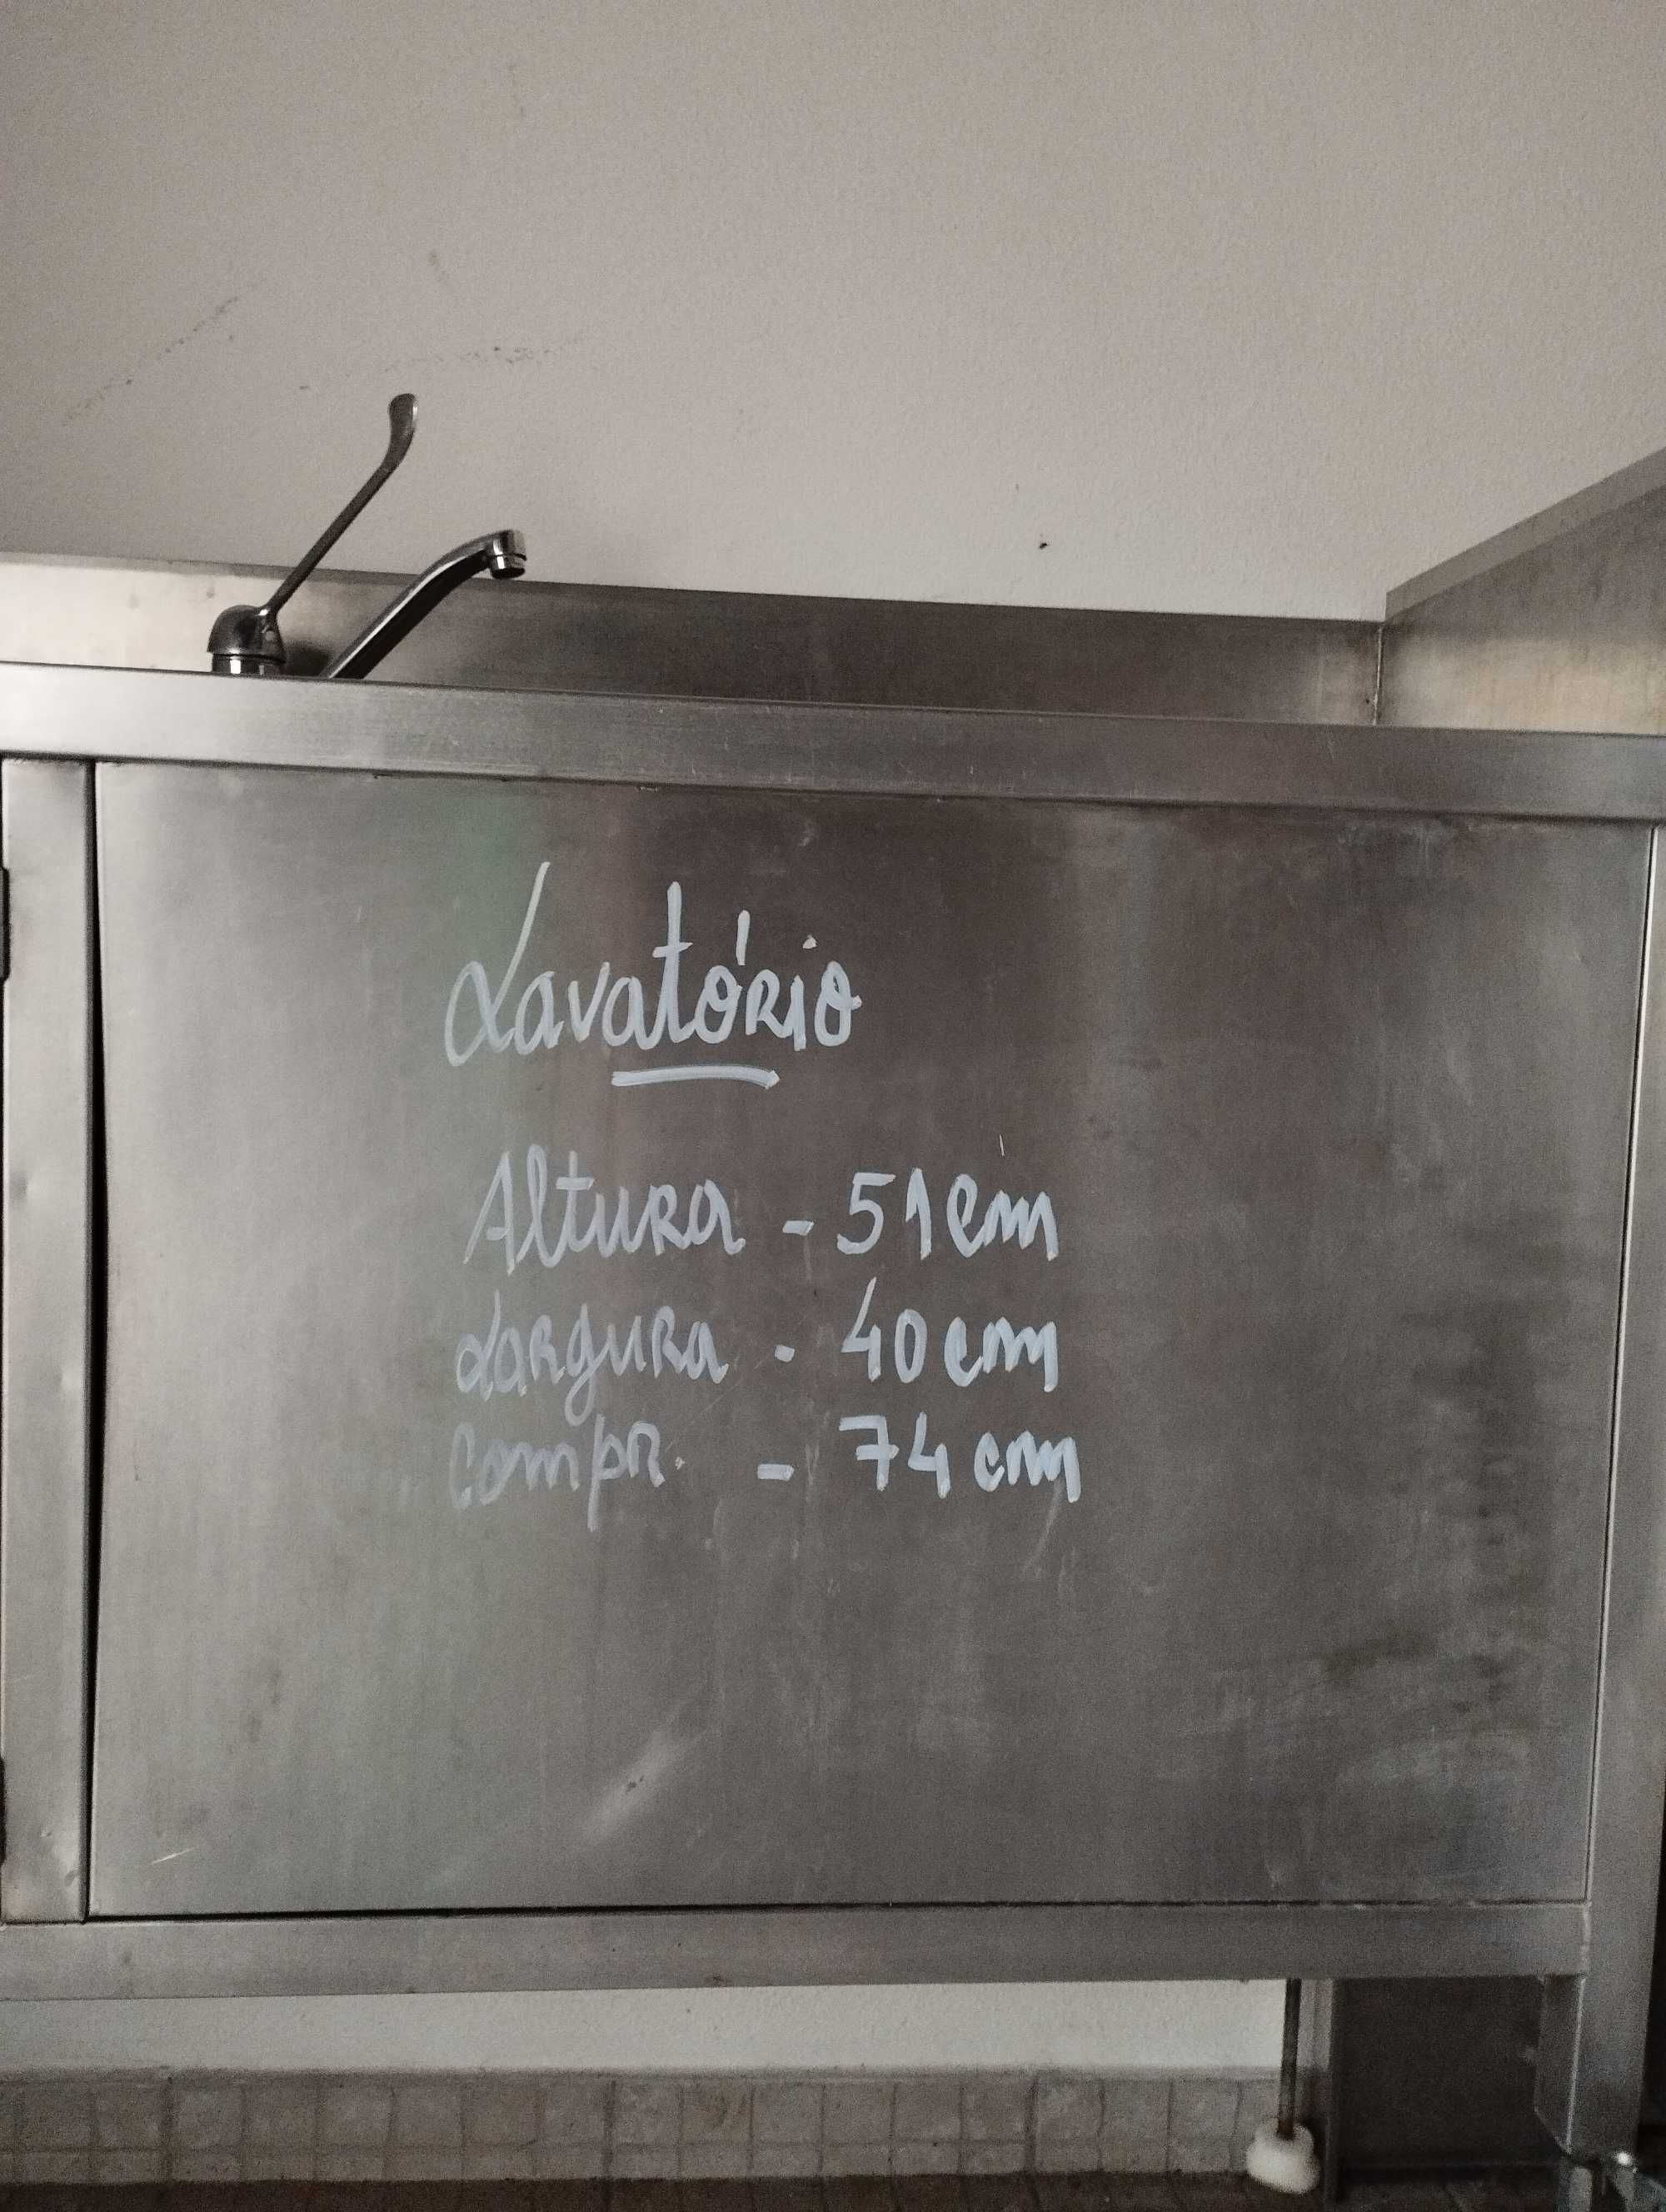 Lavatório
Altura - 51 cm
Largura - 40 cm
Compr. - 74 cm